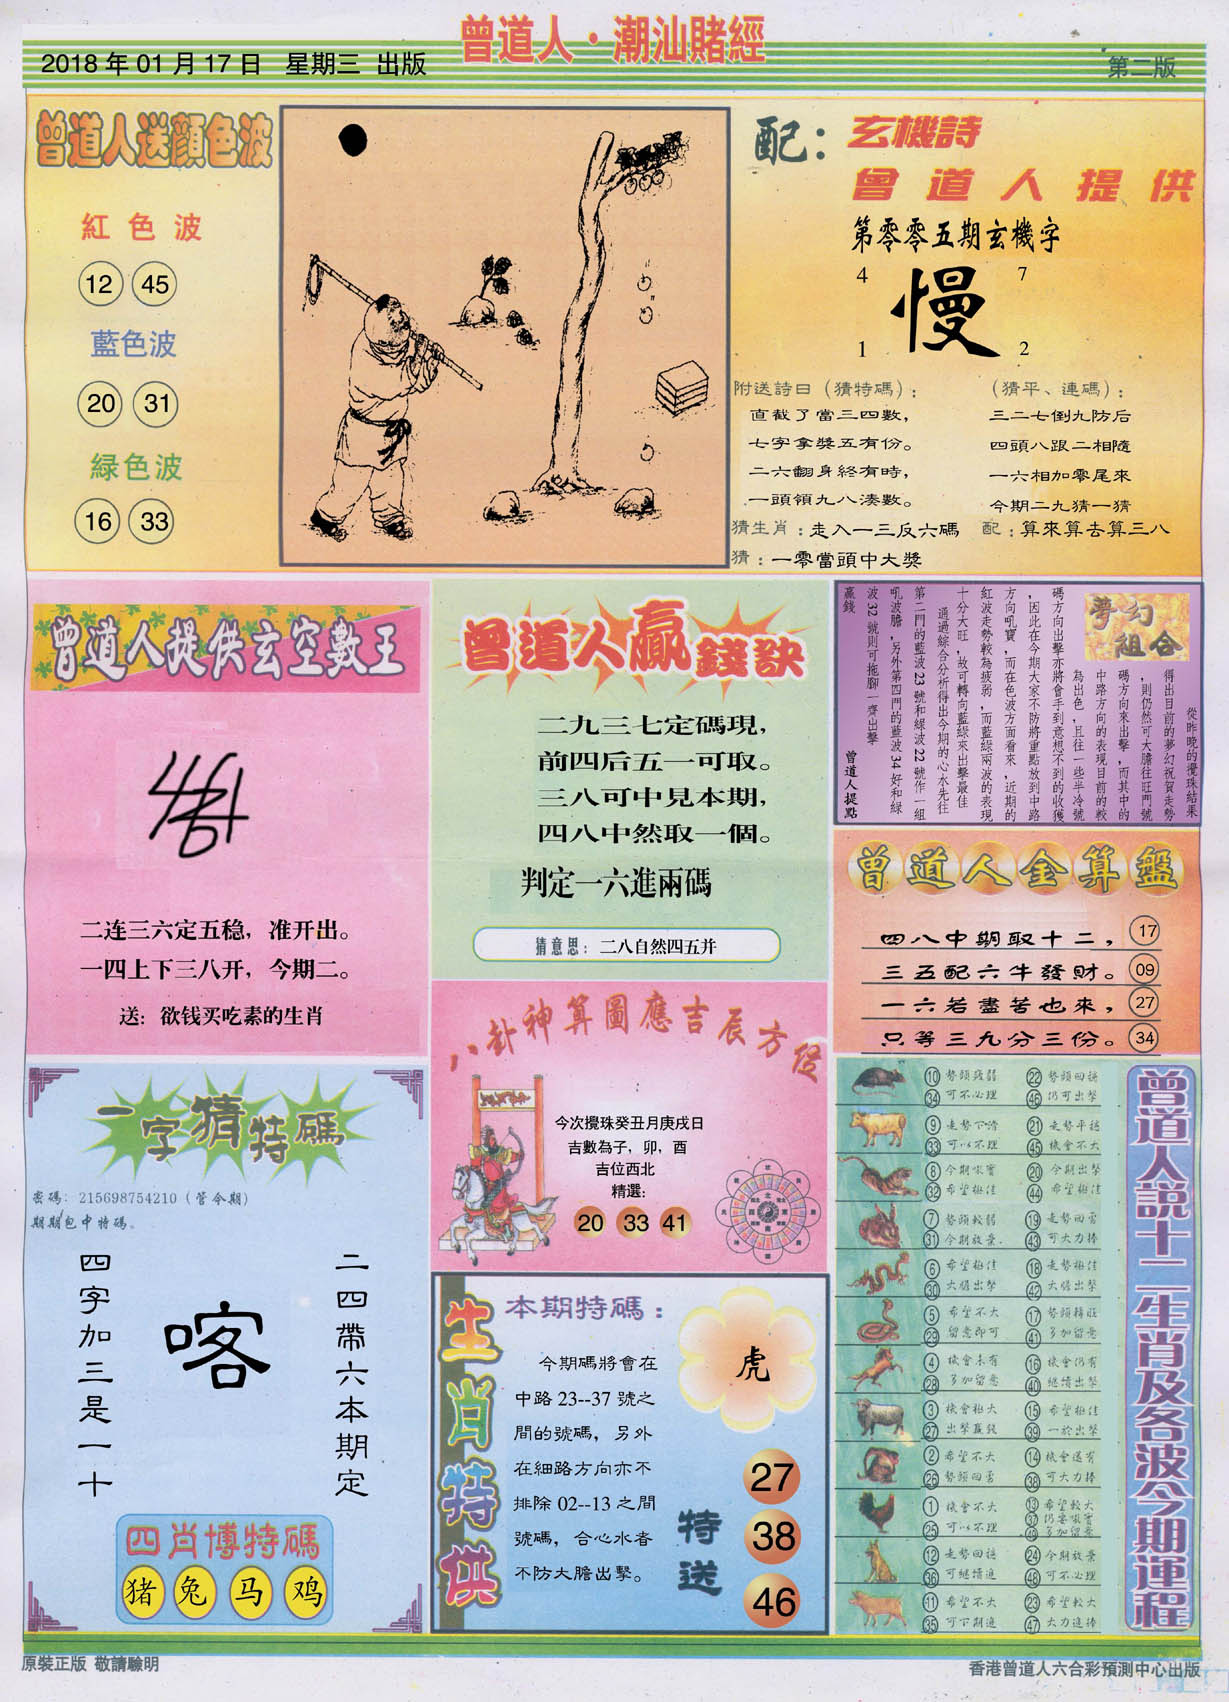 曾道人·潮汕賭經
2018年01月17日 星期三 出版
第二版
曾道人送顏色波
紅色波
12 45
藍色波
20 31
緑色波
16 33
配：玄機詩
曾道人提供
第零零五期玄機字
4 7
慢
1 2
附送詩曰（猜特碼）：
直截了當三四數，
七字拿獎五有份。
二六翻身終有時，
一頭領九八湊數。
（猜平、連碼）：
三二七倒九防后
四頭八跟二相隨
一六相加零尾來
今期二九猜一猜
猜生肖：走入一三反六碼
配：算來算去算三八
猜：一零當頭中大獎
曾道人提供玄空數王
二连三六定五稳，准开出。
一四上下三八开，今期二。
送：欲钱买吃素的生肖
曾道人贏錢訣
二九三七定碼現，
前四后五一可取。
三八可中見本期，
四八中然取一個。
判定一六進兩碼
猜意思：二八自然四五并
夢幻
組合
從昨晚的攪珠結果
得出目前的夢幻祝賀走勢
，則仍然可大膽往旺門號
碼方向來出擊，而其中的
中路方向的表現目前的較
為出色，且往一些半冷號
碼方向出擊亦將會手到意想不到的收獲
，因此在今期大家不防將重點放到中路
方向吼寶，而在色波方面看來，近期的
紅波走勢較為疲弱，而藍綠兩波的表現
十分大旺，故可轉向藍綠來出擊最佳
通過綜合分析得出今期的心水先往
第二門的藍波23號和綠波22號作一組
吼波膽，另外第四門的藍波34好和綠
波32號則可拖腳一齊出擊
贏錢
曾道人提點
曾道人金算盤
四八中期取十二， 17
三五配六牛發財。 09
一六若盡苦也來， 27
只等三九分三份。 34
八卦神算圖應吉辰方位
今次攪珠癸丑月庚戌日
吉數為子，卯，酉
吉位西北
精選：
20 33 41
一字猜特碼
密碼：215698754210（管今期）
期期包中特碼。
二四帶六本期定
喀
四字加三是一十
四肖博特碼
猪 兔 马 鸡
生肖特供
本期特碼：
今期碼將會在
中路23--37號之
間的號碼，另外
在細路方向亦不
排除02--13之間
號碼，合心水者
不防大膽出擊。
虎
特送
27
38
46
曾道人説十二生肖及各波今期運程
10 勢頭疲弱 22 勢頭回擴
34 可不必理 46 仍可出擊
9 走勢下滑 21 走勢平穩
33 可以不理 45 機會不大
8 今期吼寶 20 今期出擊
32 希望極佳 44 希望極佳
7 勢頭較弱 19 走勢回勇
31 今期放棄 43 可大力捧
6 希望極佳 18 走勢極佳
30 大膽出擊 42 大膽出擊
5 希望不大 17 勢頭轉旺
29 留意即可 41 多加留意
4 機會未有 16 機會仍有
28 多加留意 40 繼續出擊
3 機會極大 15 希望極佳
27 出擊贏錢 39 一於出擊
2 希望不大 14 機會還有
26 勢頭回勇 38 可大力捧
1 機會不大 13 希望較大
25 可以不理 37 仍要吼寶
49 多加留意
12 走勢回穩 24 今期放棄
36 可繼續追 48 可不必理
11 希望不大 23 希望較大
35 可下期追 47 大力追捧
原裝正版 敬請驗明
香港曾道人六合彩預測中心出版